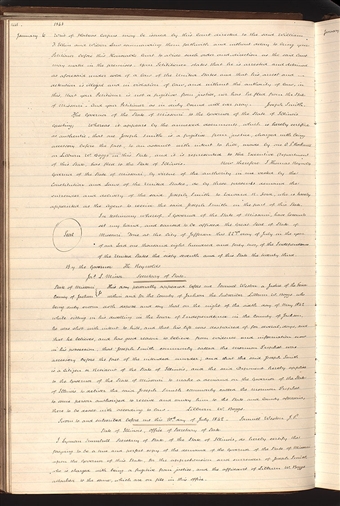 1843
January 4
Writ of Habeas Corpus may be issued by this court
Petitioner before this Honorable Court to abide such order and direction as the said Court
may make in the premises. Your Petitioner states that he is arrested and detained
as aforesaid under color of a law of the United States and that his arrest and
detention is illegal and in violation of law, and without the authority of law, in
this that your Petitioner is not a fugitive from justice, nor has he fled from the State
of Missouri. And your Petitioner as in duty bound will ever pray. Joseph Smith.
The Governor of the State of Missouri to the Governor of the State of Illinois
Greeting: Whereas it appears by the annexed document, which is hereby certified
as authentic, that one Joseph Smith is a fugitive from justice, charged with being
accessory before the fact, to an assault with intent to kill, made by one O. P. Rockwell
on Lilburn W. Boggs in this State, and it is represented to the Executive Department
of this State, has fled to the State of Illinois. Now therefore I Thomas Reynolds
Governor of the State of Missouri, by virtue of the authority in me vested by the
Constitution and Laws of the United States, do by these presents demand the
surrender and delivery of the said Joseph Smith to
appointed as the agent to receive the said Joseph Smith, on the part of this State.
In testimony whereof, I Governor of the State of Missouri, have hereunto
set my hand, and caused to be affixed the Great Seal of State of
Seal
Missouri. Done at the City of Jefferson this 22nd day of July in the year
of our Lord one thousand eight hundred and forty two of the Independence
of the United States the sixty seventh and of this State the twenty third
By the Governor Th. Reynolds
Jas. L. Minor Secretary of State.
State of Missouri
County of Jackson
This day personally appeared before me Samuel Weston a Justice of the Peace
within and for the County of Jackson, the subscriber Lilburn W. Boggs, who
being duly sworn doth depose and say that on the night of the sixth day of May 1842
while sitting in his dwelling in the town of Independence in the County of Jackson
he was shot with intent to kill, and that his life was despaired of for several days, and
that he believes, and has good reason to believe from evidence and information now
in his possession, that Joseph Smith commonly called the Mormon Prophet was
accessory before the fact of the intended murder, and that the said Joseph Smith
is a citizen or resident of the State of Illinois, and the said deponent hereby applies
to the Governor of the State of Missouri to make a demand on the Governor of the State
of Illinois to deliver the said Joseph Smith commonly called the Mormon Prophet
to some person authorized to receive and convey him to the State and County aforesaid,
there to be dealt with according to law. Lilburn W. Boggs
Sworn to and subscribed before me this 20th day of July 1842. Samuel Weston J.P.
State of Illinois, Office of Secretary of State.
I Lyman Trumbull Secretary of State of the State of Illinois, do hereby certify the
foregoing to be a true and perfect copy of the demand of the Governor of the State of Missouri
upon the Governor of this State, for the apprehension and surrender of Joseph Smith
who is charged with being a fugitive from justice, and the affidavit of Lilburn W. Boggs
attached to the same, which are on file in this office.
January